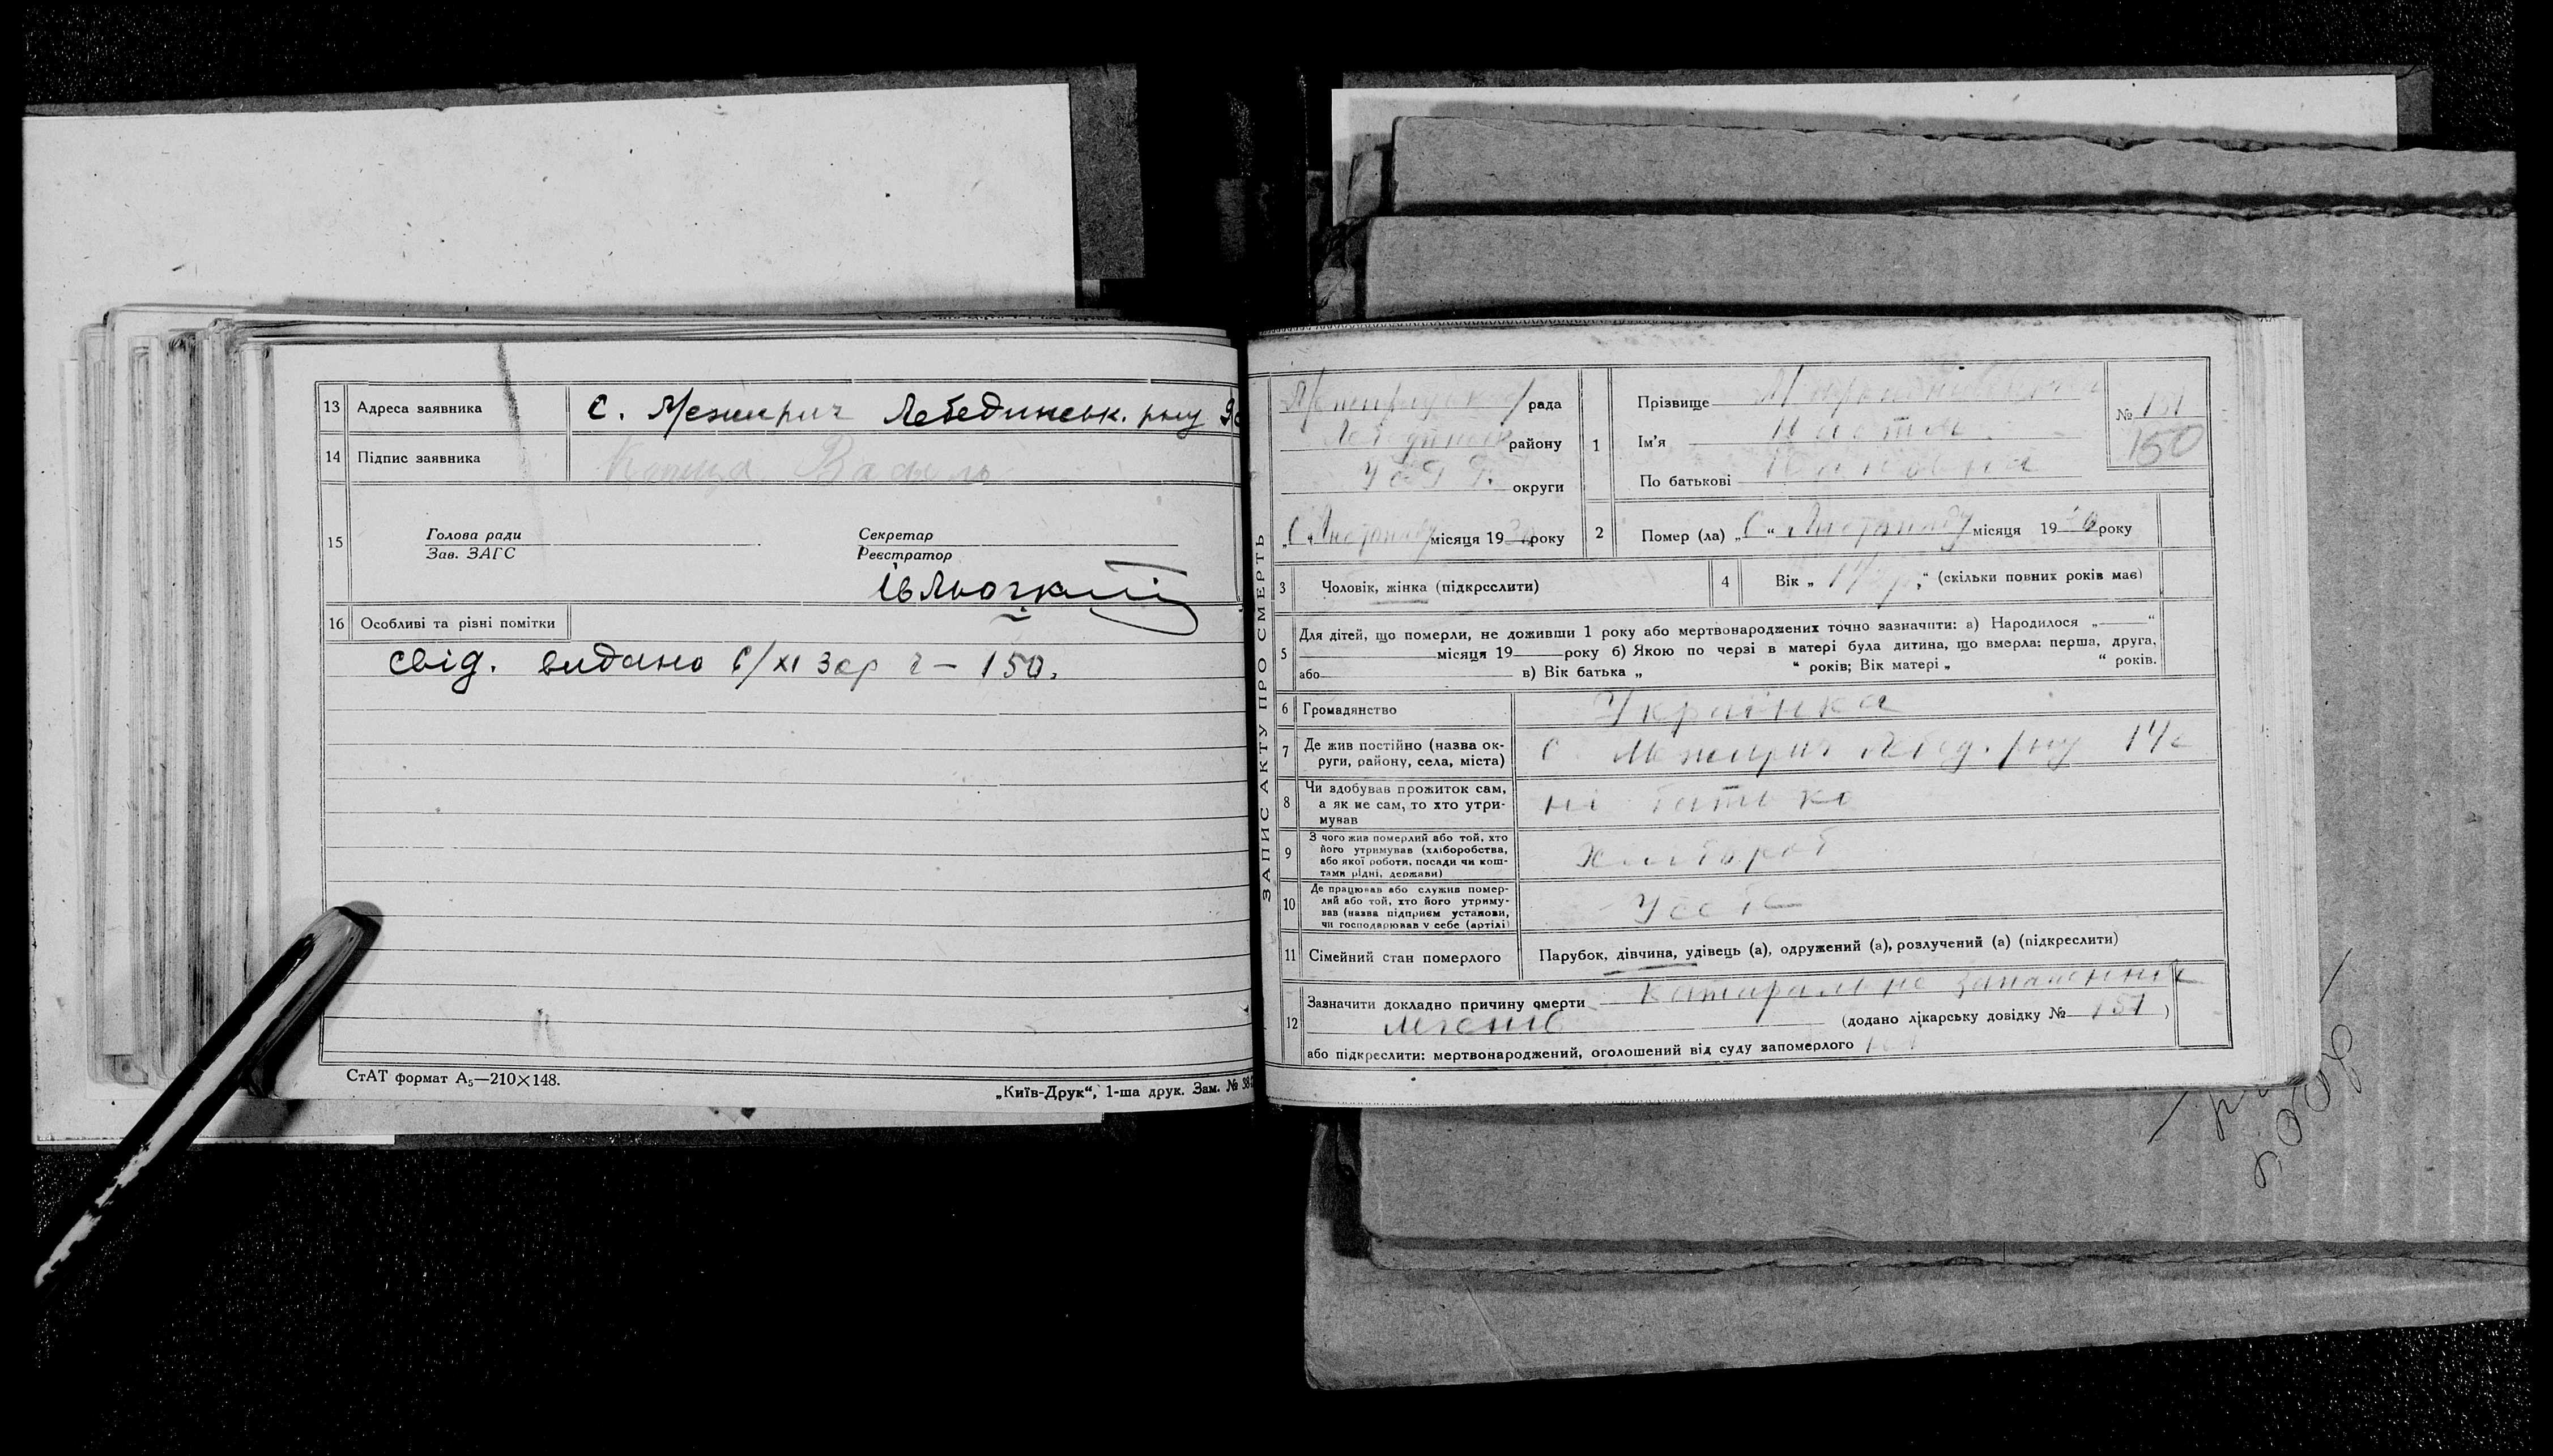 13 Адреса заявника С. Межирич Лебединськ. рну
14 Підпис заявника Василь
15 Голова ради
Зав. ЗАГС
Секретар
Реєстратор
16 Особливі та різні помітки
свід. видано 6/XI 30р 150.
СтАТ формат А₅—210×148.
„Київ-Друк“, 1-ша друк. Зам. №
ЗАПИС АКТУ ПРО СМЕРТЬ
рада
Лебединськ району
округи
Листопаду місяця 1930 року
1 Прізвище
Ім'я Настя
По батькові
№ 151
150
2 Помер (ла) „6“ Листопаду місяця 1930 року
3 Чоловік, жінка (підкреслити)
4 Вік „ “ (скільки повних років має)
5 Для дітей, що померли, не доживши 1 року або мертвонароджених точно зазначити: а) Народилося „ “
місяця 19 року б) Якою по черзі в матері була дитина, що вмерла: перша, друга,
або в) Вік батька „ “ років; Вік матері „ “ років.
6 Громадянство Українка
7 Де жив постійно (назва ок-
руги, району, села, міста) С Межирич Лебед. рну
8 Чи здобував прожиток сам,
а як не сам, то хто утри-
мував ні батько
9 З чого жив померлий або той, хто
його утримував (хліборобства,
або якої роботи, посади чи кош-
тами рідні, держави) Хлібороб
10 Де працював або служив помер-
лий або той, хто його утриму-
вав (назва підприєм установи,
чи господарював у себе (артілі) У себе
11 Сімейний стан померлого Парубок, дівчина, удівець (а), одружений (а), розлучений (а) (підкреслити)
12 Зазначити докладно причину смерти Катаральне запалення
легенів (додано лікарську довідку № 151 )
або підкреслити: мертвонароджений, оголошений від суду запомерлого